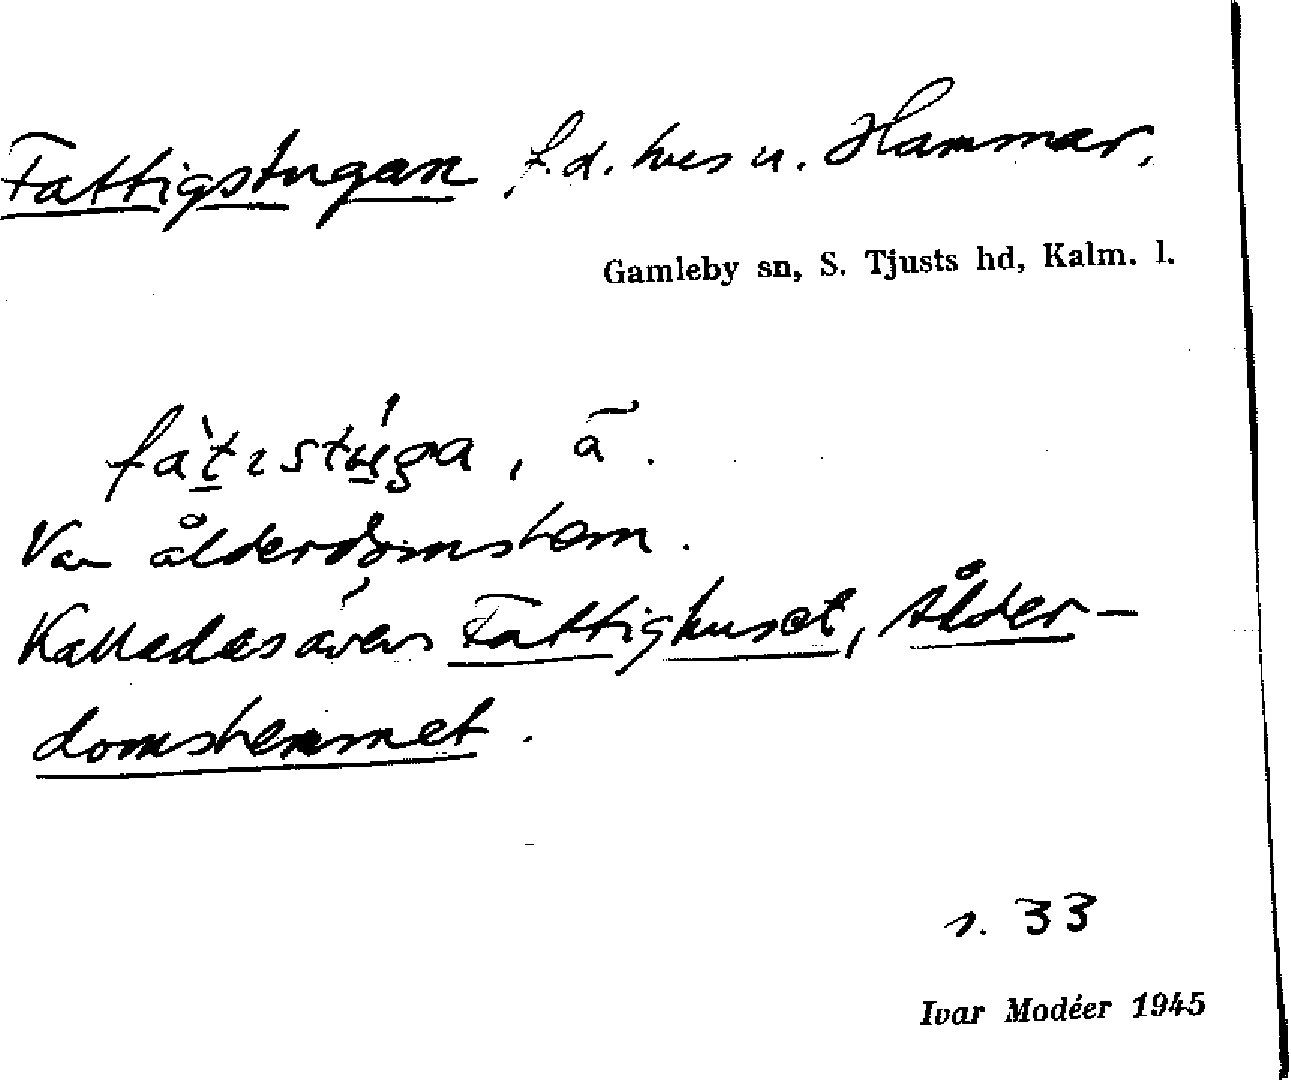 Fattigstugan f.d. hus u. Hammar.
Gamleby sn, S. Tjusts hd, Kalm. l.
fàt̲ɪstú̲ga, ā.
Var ålderdomshem.
Kallades även Fattighuset, Ålder-
domshemmet.
s. 33
Ivar Modéer 1945